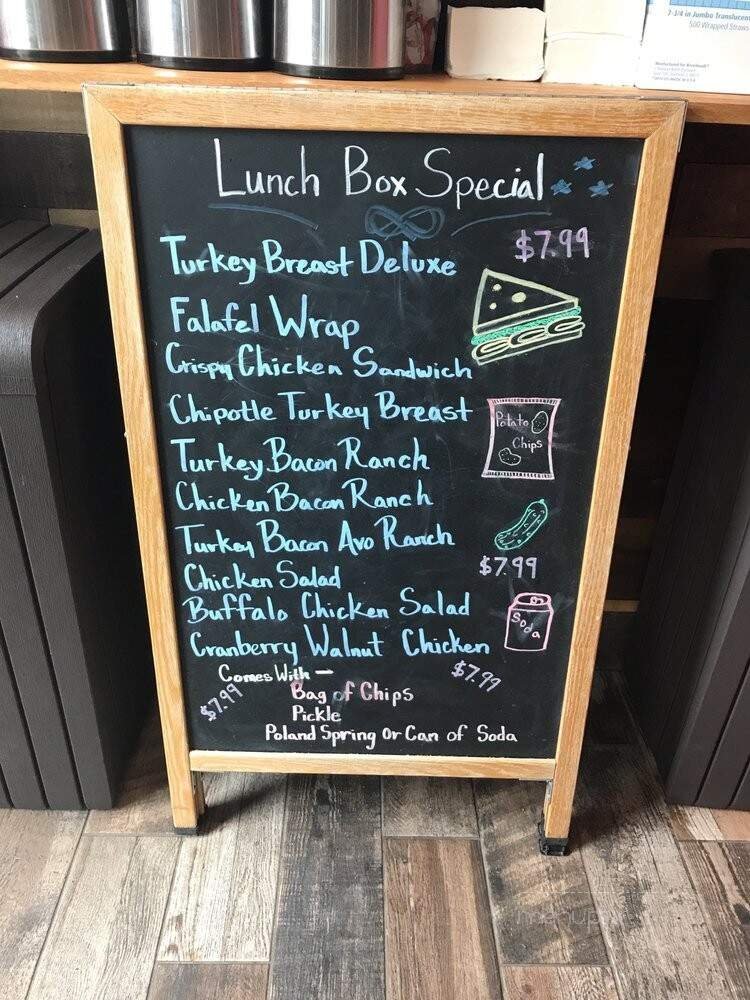 7-3/4 in Jumbo Translucent
500 Wrapped Straws
Lunch Box Special
$7.99
Turkey Breast Deluxe
Falafel Wrap
Crispy Chicken Sandwich
Chipotle Turkey Breast
Potato
Chips
Turkey Bacon Ranch
Chicken Bacon Ranch
Turkey Bacon Avo Ranch
$7.99
Chicken Salad
Buffalo Chicken Salad
Soda
Cranberry Walnut Chicken
Comes With —
$7.99
$7.99
Bag of Chips
Pickle
Poland Spring Or Can of Soda